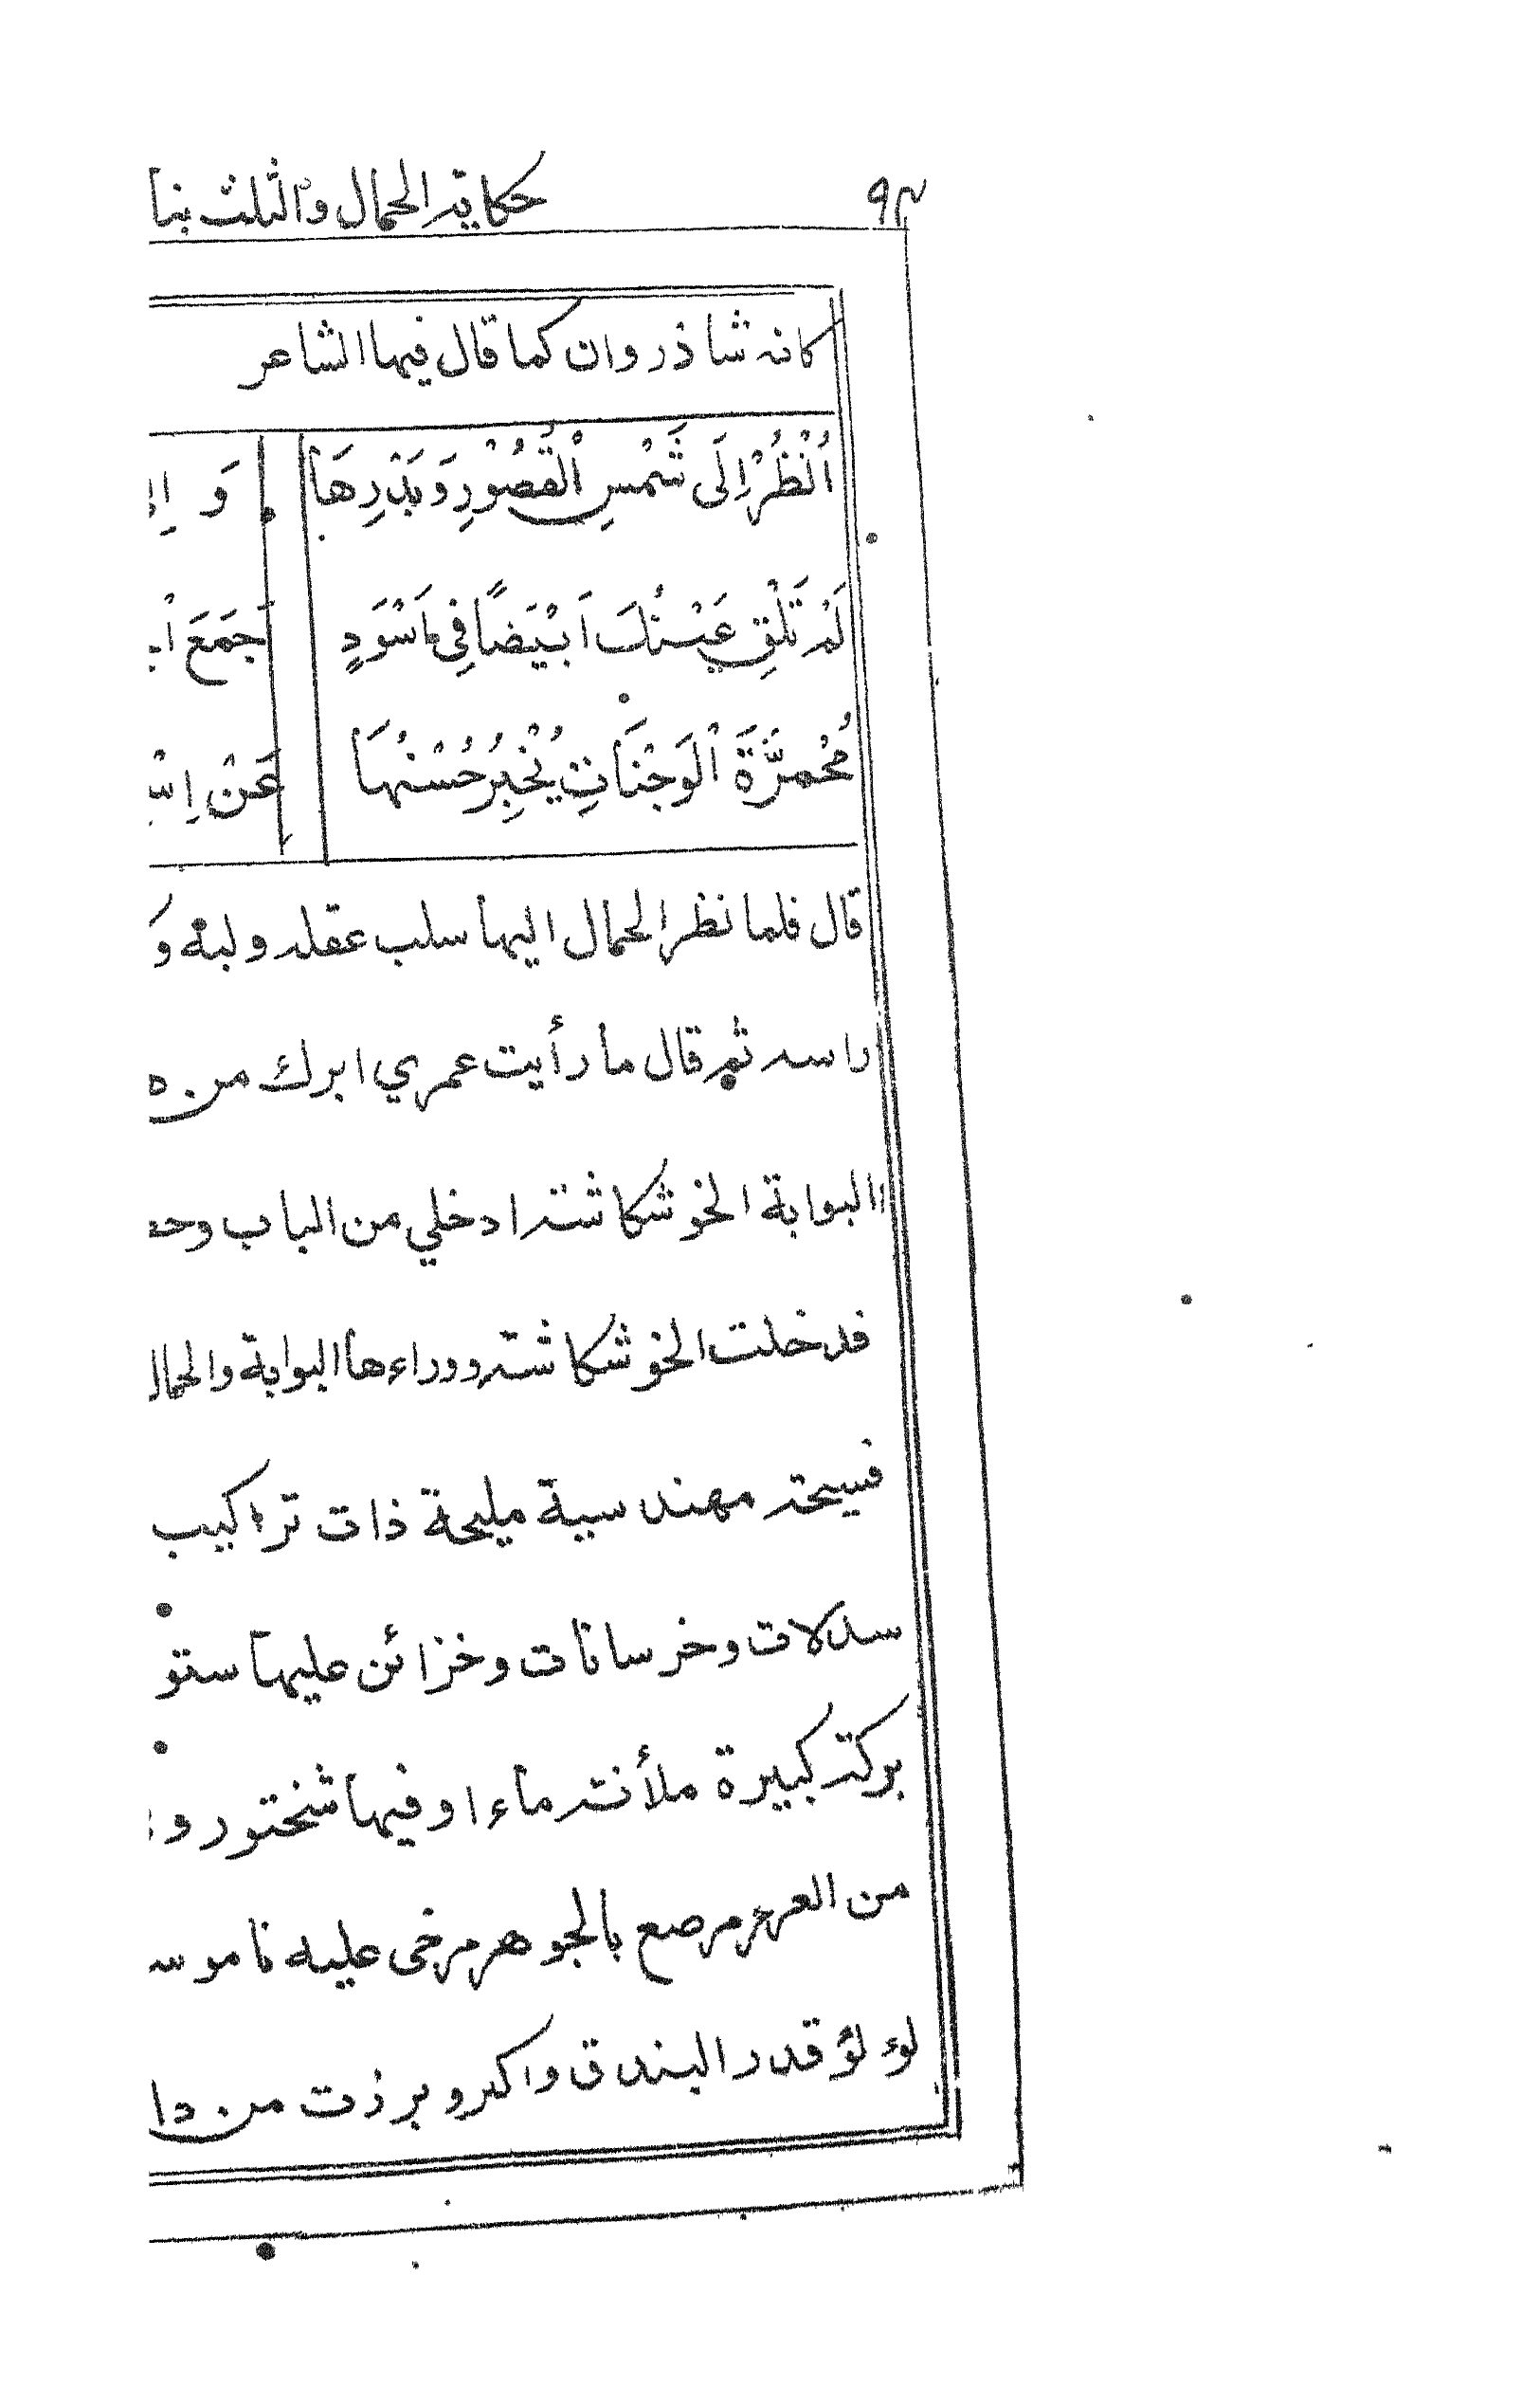 ٩٣ حكاية الحمال والثلث بنا
كانه شاذروان كما قال فيها الشاعر
اُنْظُرْ اِلَى شَمْسِ اْلقُصُوْرِ وَبَدْرِهَا وَ
لَمْ تَلْقِ عَيْنُكَ اَبْيَضًا فِي اَسْوَدٍ جَمَعَ
مُحْمَرَّةَ اْلَوَجْنَاتِ يُخْبِرُ حُسْنُهَا عَنْ
قال فلما نظر الحمال اليها سلب عقله ولبه و
راسه ثم قال ما رأيت عمري ابرك من
البوابة الخوشكاشة ادخلي من الباب
فدخلت الخوشكاشة ووراءها البوابة والحمال
فسيحة مهندسية مليحة ذات تراكيب
سدلات وخرسانات وخزائن عليها
بركة كبيرة ملأنة ماءا وفيها شختور و
من العرعر مرصع بالجوهر مرخى عليه
لوءلؤ قدر البندق واكبر وبرزت من